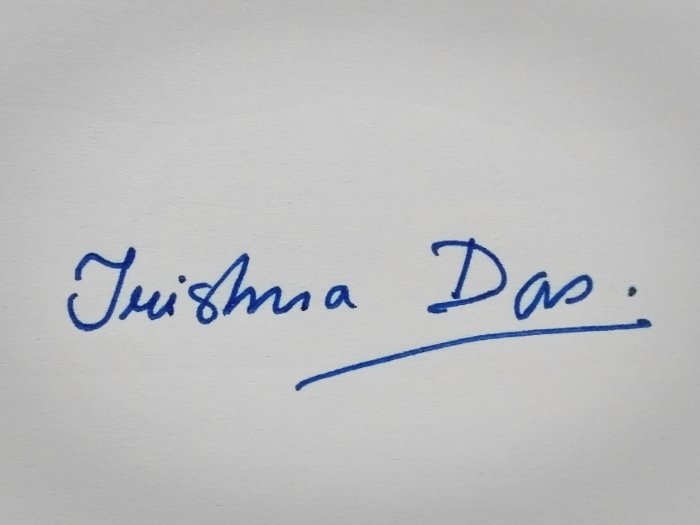 Trishna Das.